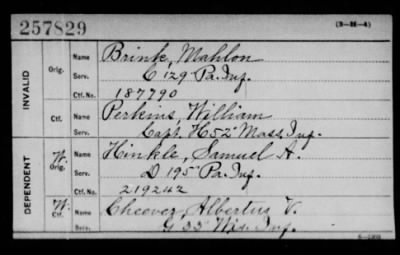 257829
(3—M—4)
INVALID
Orig.
Name Brink, Mahlon
Serv. C 129 Pa. Inf.
Ctf. No. 187790
Ctf.
Name Perkins, William
Serv. Capt. H 52" Mass Inf.
DEPENDENT
W. Orig.
Name Hinkle, Samuel A.
Serv. D 195" Pa. Inf.
Ctf. No. 219242
W. Ctf.
Name Cheever, Albertus V.
Serv. G 33" Wis. Inf.